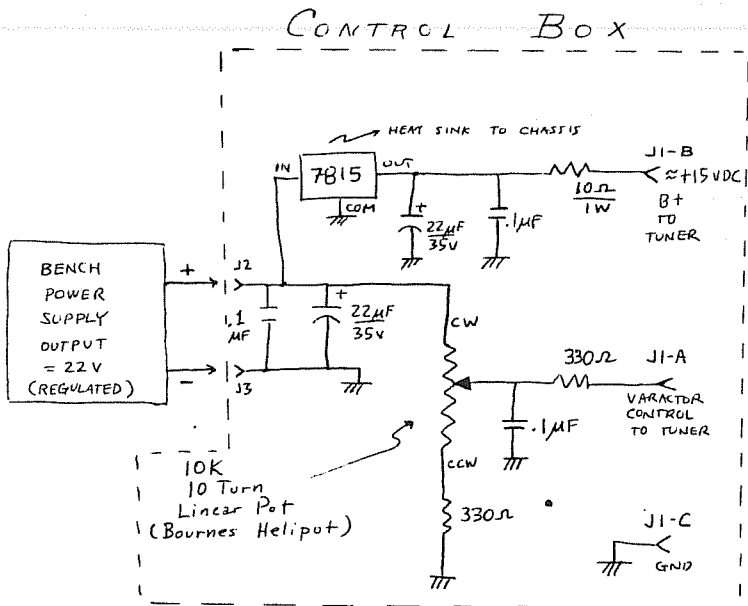 CONTROL BOX
HEAT SINK TO CHASSIS
IN
7815
OUT
COM
+
22µF
35V
.1µF
10Ω
1W
J1-B
≈+15VDC
B+
TO
TUNER
BENCH
POWER
SUPPLY
OUTPUT
= 22V
(REGULATED)
+
-
J2
J3
.1
µF
+
22µF
35V
CW
CCW
330Ω
.1µF
330Ω
J1-A
VARACTOR
CONTROL
TO TUNER
10K
10 Turn
Linear Pot
(Bournes Helipot)
J1-C
GND